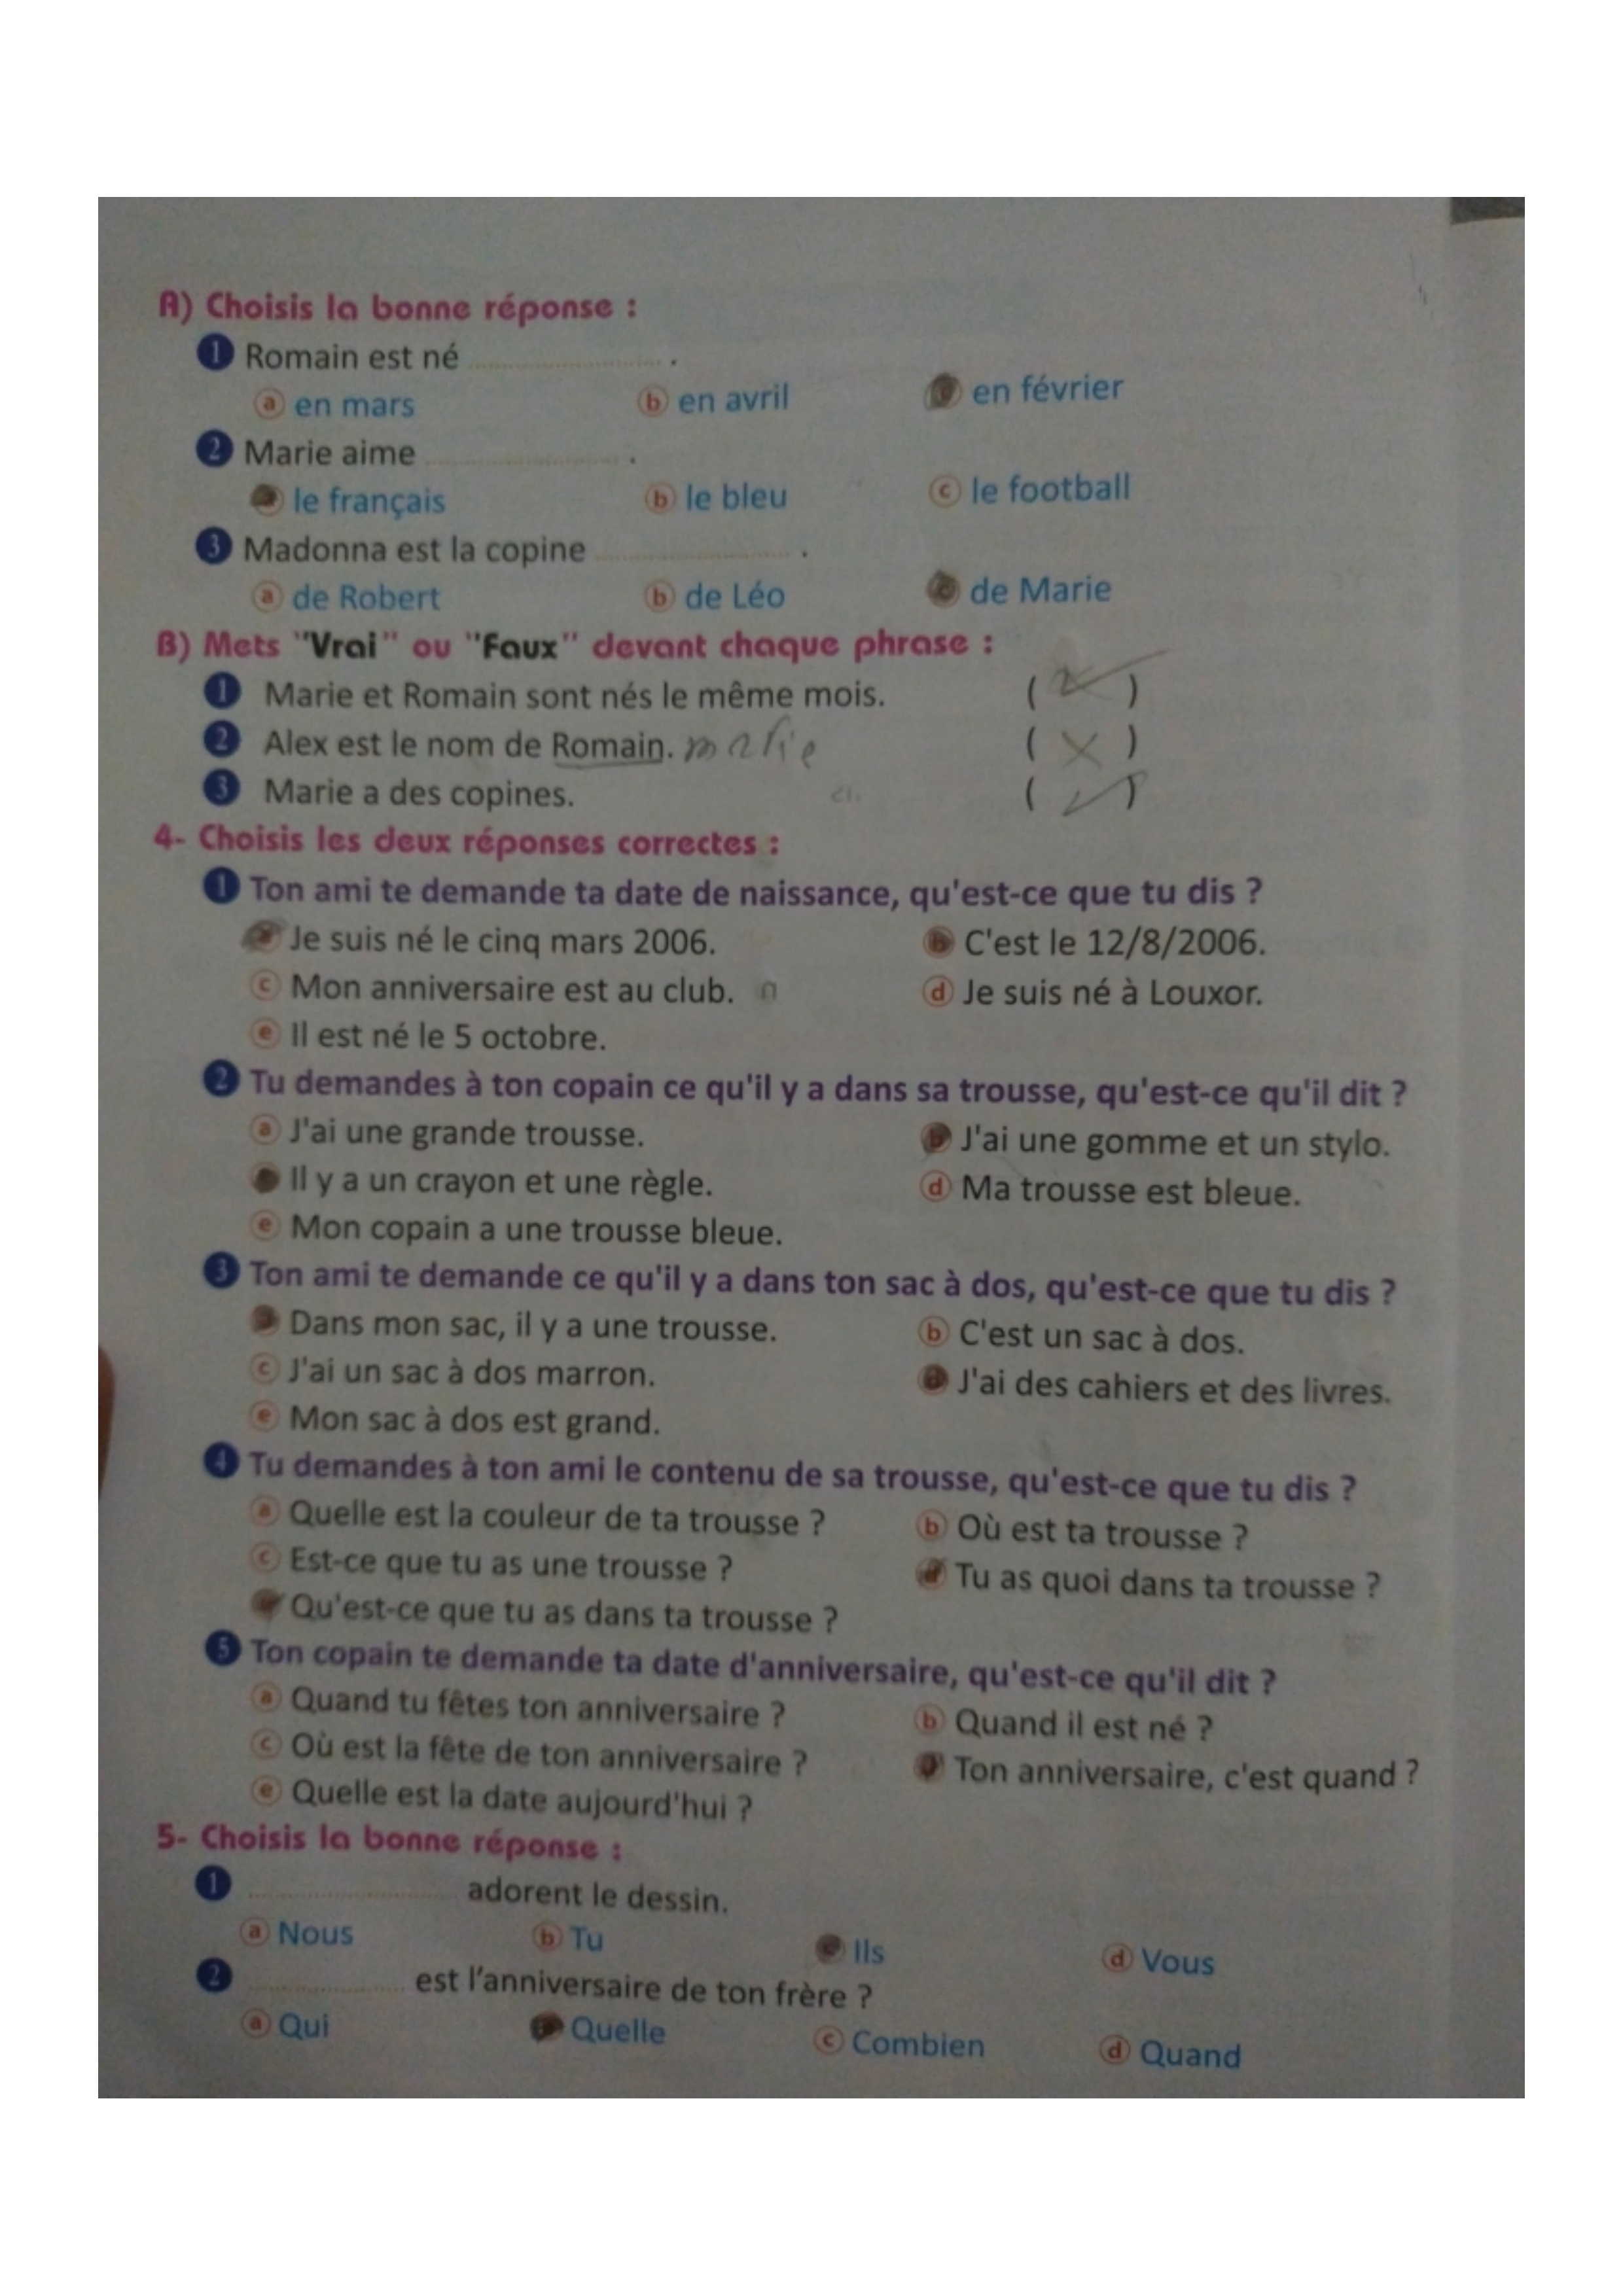 A) Choisis la bonne réponse :
1 Romain est né .................... .
a en mars b en avril c en février
2 Marie aime .................... .
a le français b le bleu c le football
3 Madonna est la copine .................... .
a de Robert b de Léo c de Marie
B) Mets "Vrai" ou "Faux" devant chaque phrase :
1 Marie et Romain sont nés le même mois. ( ✓ )
2 Alex est le nom de Romain. marie ( X )
3 Marie a des copines. ( ✓ )
4- Choisis les deux réponses correctes :
1 Ton ami te demande ta date de naissance, qu'est-ce que tu dis ?
a Je suis né le cinq mars 2006. b C'est le 12/8/2006.
c Mon anniversaire est au club. d Je suis né à Louxor.
e Il est né le 5 octobre.
2 Tu demandes à ton copain ce qu'il y a dans sa trousse, qu'est-ce qu'il dit ?
a J'ai une grande trousse. b J'ai une gomme et un stylo.
c Il y a un crayon et une règle. d Ma trousse est bleue.
e Mon copain a une trousse bleue.
3 Ton ami te demande ce qu'il y a dans ton sac à dos, qu'est-ce que tu dis ?
a Dans mon sac, il y a une trousse. b C'est un sac à dos.
c J'ai un sac à dos marron. d J'ai des cahiers et des livres.
e Mon sac à dos est grand.
4 Tu demandes à ton ami le contenu de sa trousse, qu'est-ce que tu dis ?
a Quelle est la couleur de ta trousse ? b Où est ta trousse ?
c Est-ce que tu as une trousse ? d Tu as quoi dans ta trousse ?
e Qu'est-ce que tu as dans ta trousse ?
5 Ton copain te demande ta date d'anniversaire, qu'est-ce qu'il dit ?
a Quand tu fêtes ton anniversaire ? b Quand il est né ?
c Où est la fête de ton anniversaire ? d Ton anniversaire, c'est quand ?
e Quelle est la date aujourd'hui ?
5- Choisis la bonne réponse :
1 .................... adorent le dessin.
a Nous b Tu c Ils d Vous
2 .................... est l'anniversaire de ton frère ?
a Qui b Quelle c Combien d Quand